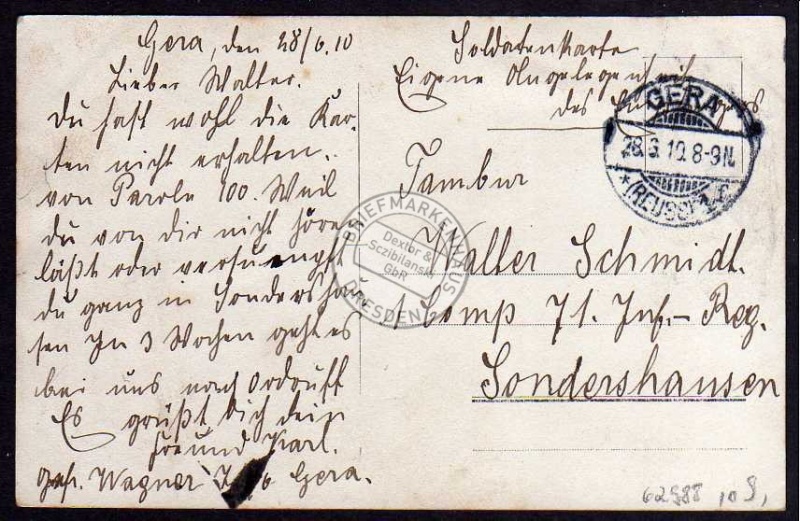 Gera, den 28/6.10
Lieber Walter.
Du hast wohl die Kar-
ten nicht erhalten.
von Parole 100. Weil
du von dir nicht hören
läßt oder
du ganz in Sondershau
sen In 3 Wochen geht es
bei uns nach Ordruff
Es grüßt Dich dein
Freund Karl.
Gefr. Wagner Gera.
Soldatenkarte
Eigene Angelegenheit
des
GERA
28.6.10.8-9N.
* * (REUSS)
Tambur
Walter Schmidt.
1 Comp 71. Inf.- Reg.
Sondershausen
BRIEFMARKENHAUS
Dextor &
Sczibilanski
GbR
DRESDEN
62988